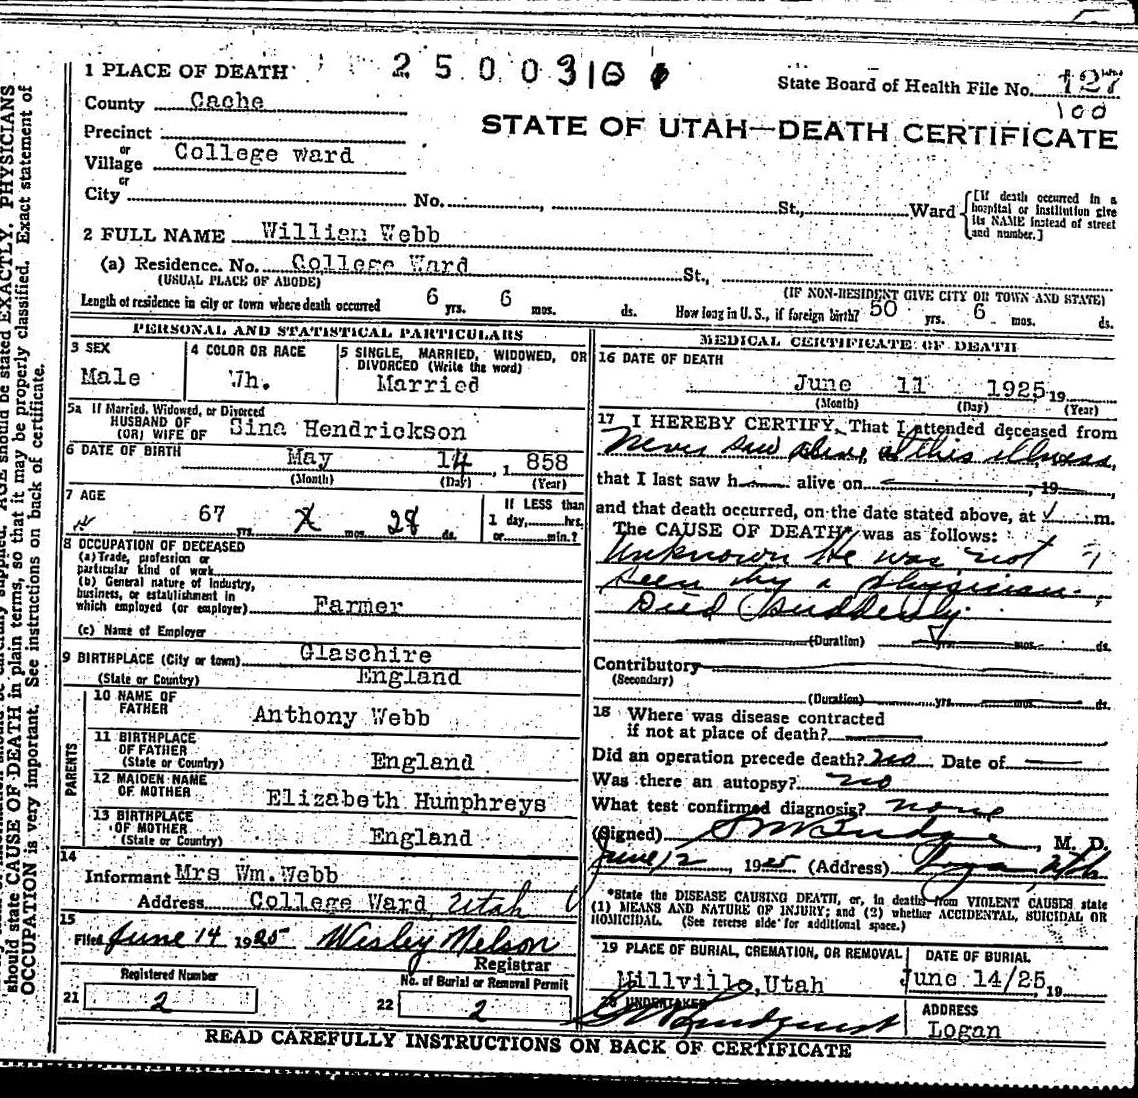 2 5 0 0 3 1 0
1 PLACE OF DEATH
State Board of Health File No. 127
100
County Cache
STATE OF UTAH—DEATH CERTIFICATE
Precinct
or
Village College ward
or
City No. , St., Ward
[If death occurred in a
hospital or institution give
its NAME instead of street
and number.]
2 FULL NAME William Webb
(a) Residence. No. College Ward St.,
(USUAL PLACE OF ABODE)
(IF NON-RESIDENT GIVE CITY OR TOWN AND STATE)
Length of residence in city or town where death occurred 6 yrs. 6 mos. ds. How long in U. S., if foreign birth? 50 yrs. 6 mos. ds.
PERSONAL AND STATISTICAL PARTICULARS
3 SEX
Male
4 COLOR OR RACE
Wh.
5 SINGLE, MARRIED, WIDOWED, OR
DIVORCED (Write the word)
Married
5a If Married, Widowed, or Divorced
HUSBAND OF
(OR) WIFE OF Sina Hendrickson
6 DATE OF BIRTH May 14, 1 858
(Month) (Day) (Year)
7 AGE
67 yrs. X mos. 28 ds.
If LESS than
1 day, hrs.
or min.?
8 OCCUPATION OF DECEASED
(a) Trade, profession or
particular kind of work
(b) General nature of industry,
business, or establishment in
which employed (or employer) Farmer
(c) Name of Employer
9 BIRTHPLACE (City or town) Glaschire
(State or Country) England
PARENTS
10 NAME OF
FATHER Anthony Webb
11 BIRTHPLACE
OF FATHER
(State or Country) England
12 MAIDEN NAME
OF MOTHER Elizabeth Humphreys
13 BIRTHPLACE
OF MOTHER
(State or Country) England
14
Informant Mrs Wm. Webb
Address College Ward, Utah
15
Filed June 14 1925 Wesley Nelson
Registrar
Registered Number
21 2
No. of Burial or Removal Permit
22 2
MEDICAL CERTIFICATE OF DEATH
16 DATE OF DEATH
June 11 1925 19
(Month) (Day) (Year)
17 I HEREBY CERTIFY, That I attended deceased from
Never saw alive, at this illness,
that I last saw h alive on , 19 ,
and that death occurred, on the date stated above, at m.
The CAUSE OF DEATH* was as follows:
Unknown he was not
seen by a physician.
Died Suddenly.
(Duration) yrs. mos. ds.
Contributory
(Secondary)
(Duration) yrs. mos. ds.
18 Where was disease contracted
if not at place of death?
Did an operation precede death? no Date of
Was there an autopsy? no
What test confirmed diagnosis? none
(Signed) S M Budge, M. D.
June 12 1925 (Address) Logan Utah
*State the DISEASE CAUSING DEATH, or, in deaths from VIOLENT CAUSES, state
(1) MEANS AND NATURE OF INJURY; and (2) whether ACCIDENTAL, SUICIDAL OR
HOMICIDAL. (See reverse side for additional space.)
19 PLACE OF BURIAL, CREMATION, OR REMOVAL
Millville, Utah
DATE OF BURIAL
June 14/25, 19
20 UNDERTAKER
Lundquist
ADDRESS
Logan
READ CAREFULLY INSTRUCTIONS ON BACK OF CERTIFICATE
AGE should be stated EXACTLY. PHYSICIANS
should state CAUSE OF DEATH in plain terms, so that it may be properly classified. Exact statement of
OCCUPATION is very important. See instructions on back of certificate.